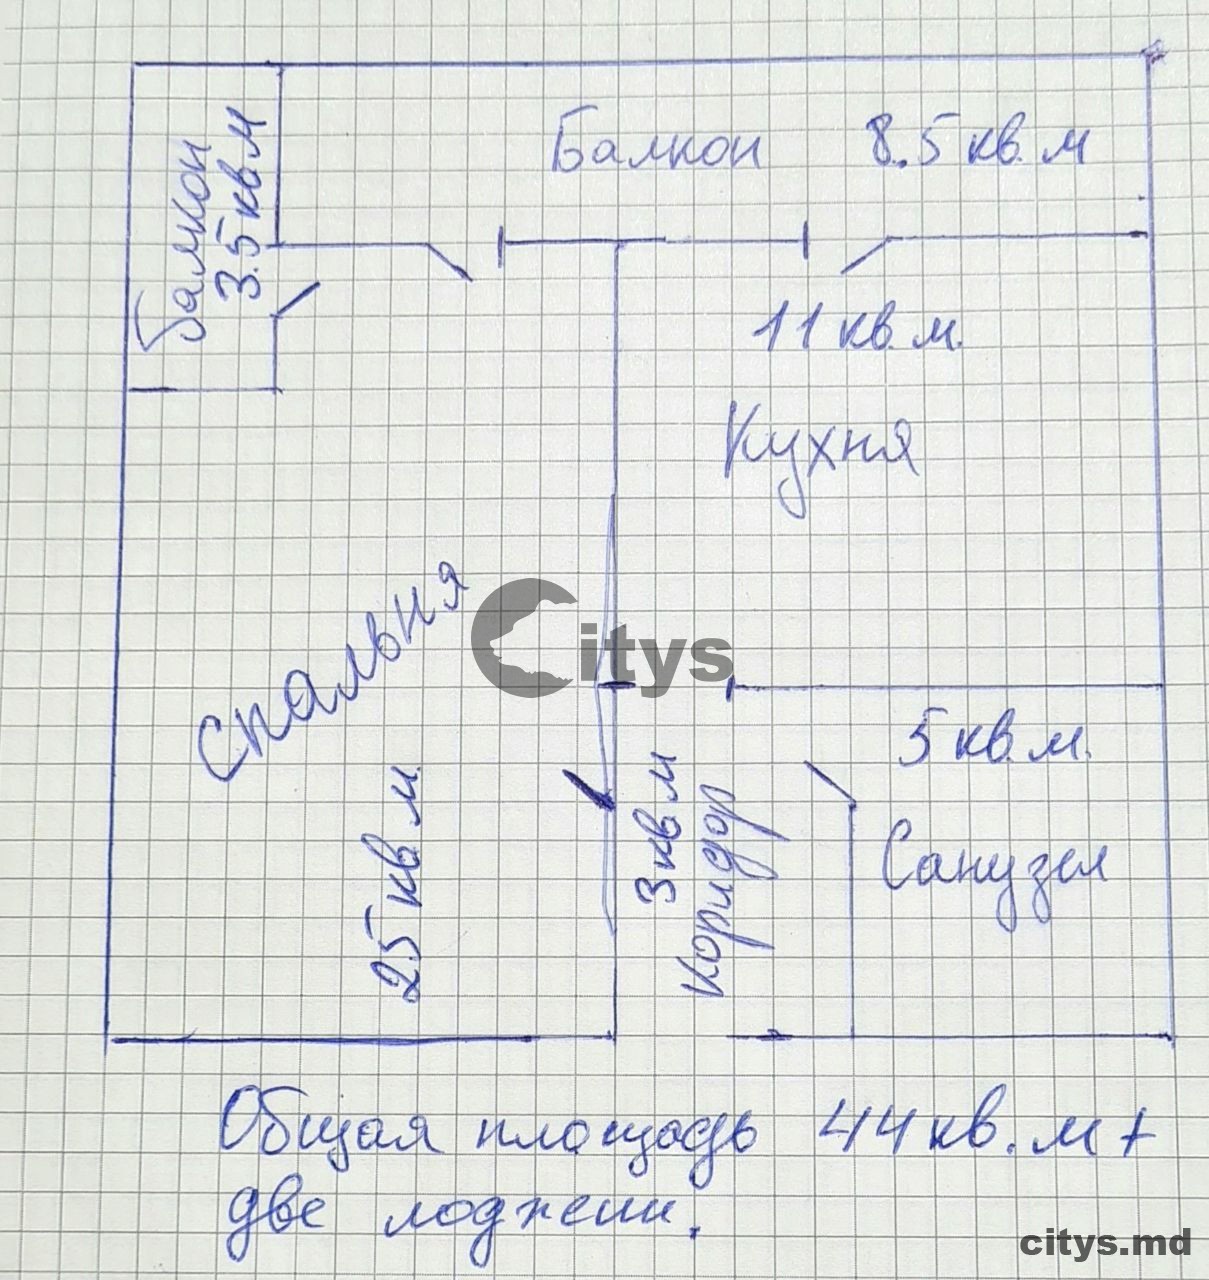 Балкон
3.5 кв м
Балкон 8.5 кв. м
11 кв. м.
Кухня
Спальня
25 кв м.
citys
5 кв. м.
Санузел
3 кв м
Коридор
Общая площадь 44 кв. м +
две лоджеии.
citys.md